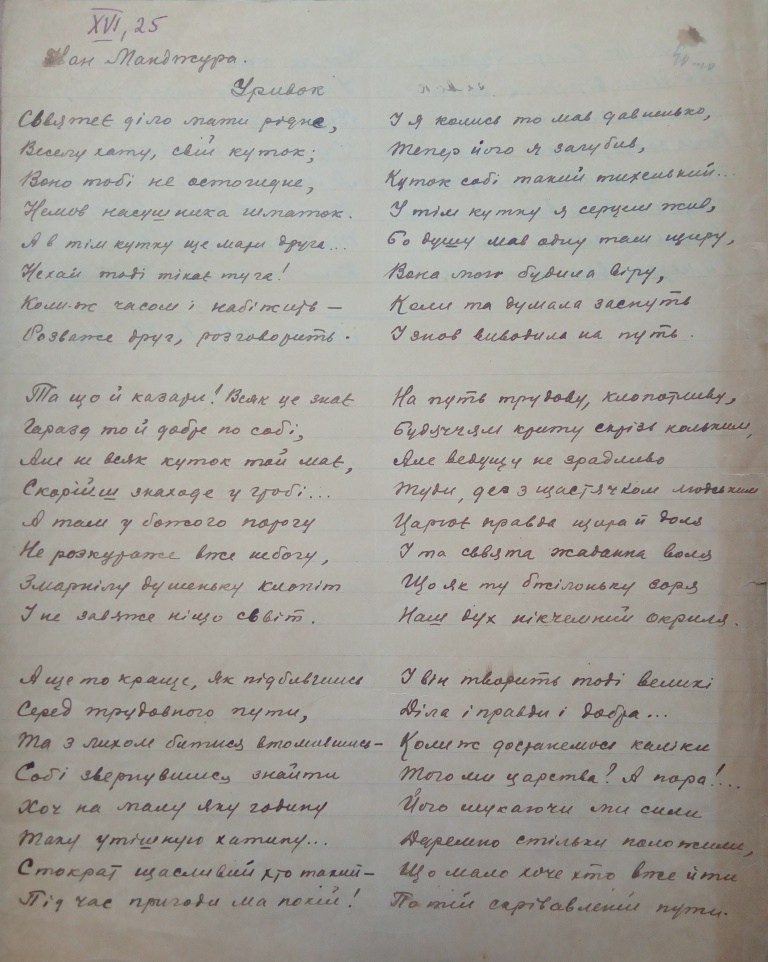 XVI, 25
Іван Манджура.
Уривок
Свьятеє діло мати рідне,
Веселу хату, свій куток;
Воно тобі не остогидне,
Немов насущника шматок.
А в тім кутку ще мати друга...
Нехай тоді тікає туга!
Коли-ж часом і набіжить —
Розваже друг, розговорить.
Та що й казати! Всяк це знає
Гаразд той добре по собі,
Але не всяк куток той має,
Скорійш знаходе у гробі...
А там у божого порогу
Не розкураже вже небогу,
Змарнілу душеньку клопіт
І не завяже ніщо сьвіт.
А ще то краще, як підбившись
Серед трудовного пути,
Та з лихом битися втомившись —
Собі звернувшися знайти
Хоч на малу яку годину
Таку утішную хатину...
Стократ щасливий хто такий —
Під час пригоди ма покій!
І я колись то мав давненько,
Тепер його я загубив,
Куток собі такий тихенький...
У тім кутку я серцем жив,
Бо душу мав одну там щиру,
Вона мою будила віру,
Коли та думала заснуть
І знов виводила на путь.
На путь трудову, клопотливу,
Будяччям криту скрізь кольким,
Але ведущу не зрадливо
Туди, де з щастячком людським
Царює правда щира й доля
І та сьвята жаданна воля
Що як ту бжілоньку зоря
Наш дух нікчемний окриля.
І він творить тоді великі
Діла і правди і добра...
Коли ж достанемося каліки
Того ми царства? А пора!...
Його шукаючи ми сили
Даремно стільки положили,
Що мало хоче хто вже йти
По тій скрівавленій пути.